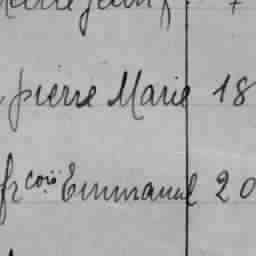 pierre Marie 18
frçois Emmanuel 20